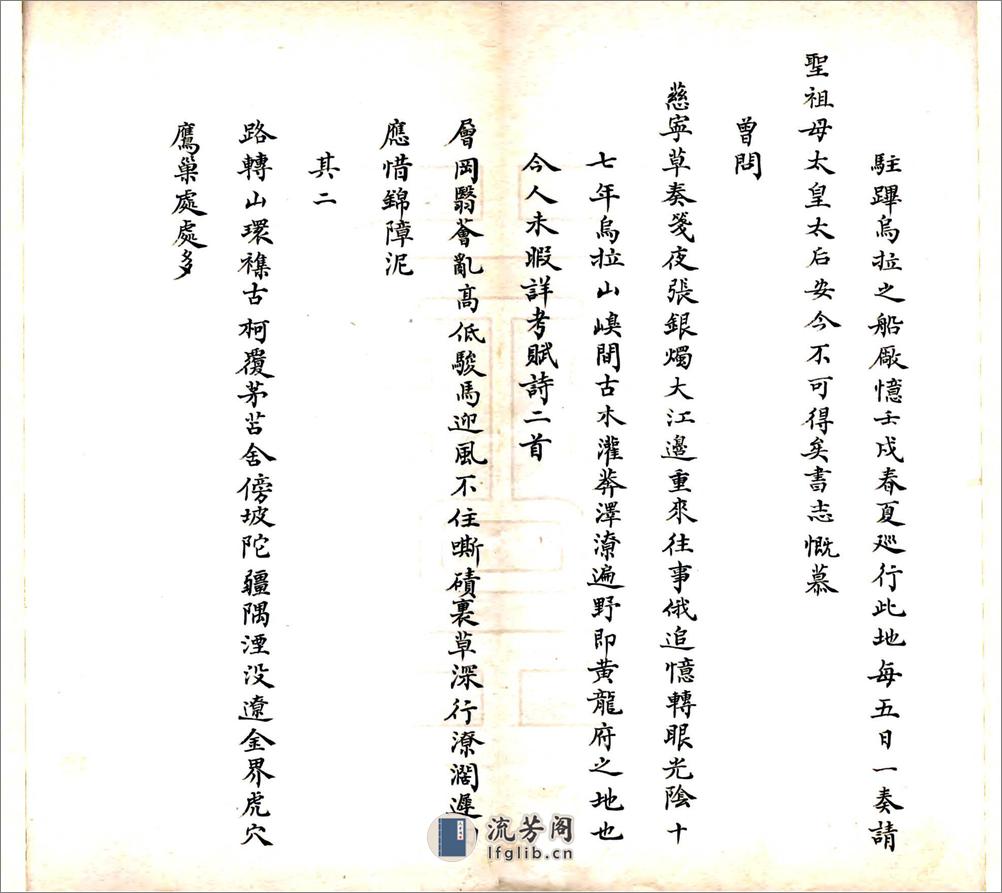 駐蹕烏拉之船厰憶壬戌春夏廵行此地每五日一奏請
聖祖母太皇太后安今不可得矣書志慨慕
曾問
慈寧草奏箋夜張銀燭大江邊重來往事俄追憶轉眼光陰十
七年烏拉山嶼間古木灌莽澤潦遍野即黄龍府之地也
今人未暇詳考賦詩二首
層岡翳薈亂高低駿馬迎風不住嘶磧裏草深行潦濶遲
應惜錦障泥
其二
路轉山環襍古柯覆茅苫舍傍坡陀疆隅湮没遼金界虎穴
鷹巢處處多
流芳阁
lfglib.cn